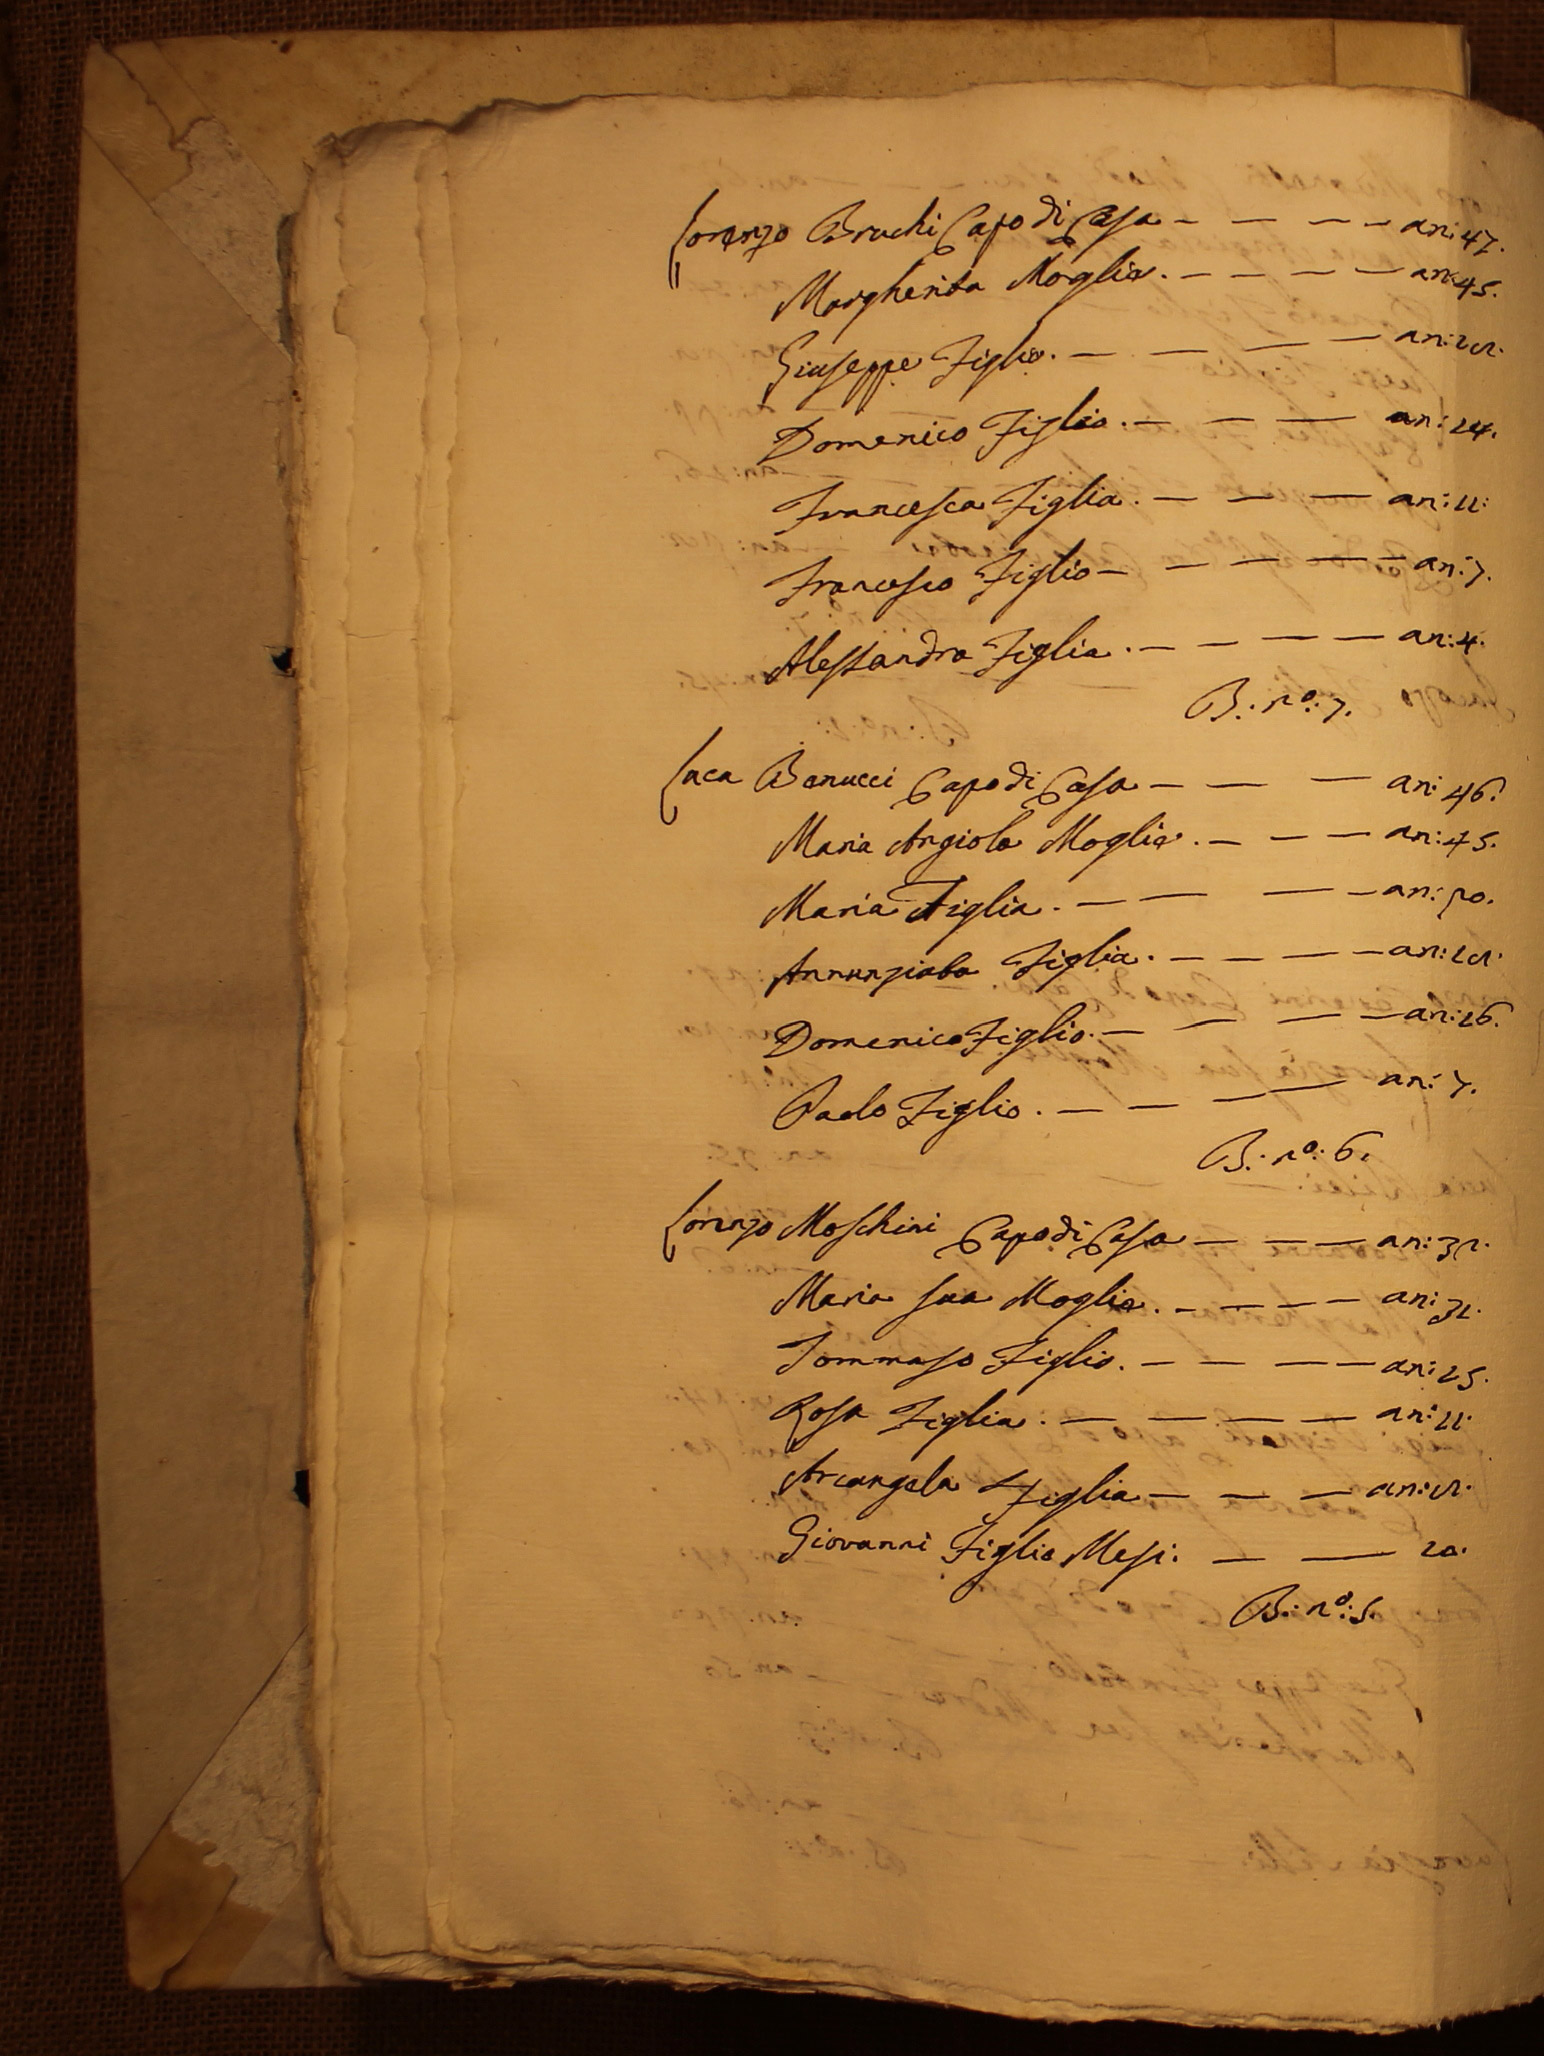 Lorenzo Bruchi Capo di Casa - - - - an: 47.
Margherita Moglie. - - - - an: 45.
Giuseppe Figlio. - - - - an:
Domenico Figlio. - - - - an: 24.
Francesca Figlia. - - - an: 11:
Francesco Figlio - - - - - an: 7.
Alessandra Figlia. - - - - an: 4.
B: n.o: 7.
Luca Banucci Capo di Casa - - - an: 46.
Maria Angiola Moglie. - - - an: 45.
Maria Figlia. - - - - an:
Annunziata Figlia. - - - - an:
Domenico Figlio. - - - - an: 16.
Paolo Figlio. - - - - an: 7.
B: n.o: 6.
Lorenzo Moschini Capo di Casa - - - an:
Maria sua Moglie. - - - - an:
Tommaso Figlio. - - - - an:
Rosa Figlia. - - - - an: 11.
Arcangela Figlia - - - an:
Giovanni Figlio Mesi. - -
B: n.o: 5.